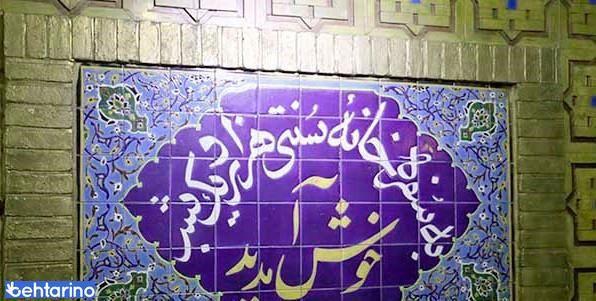 به سفره خانه سنتی هزار و یک شب
خوش آمدید
behtarino